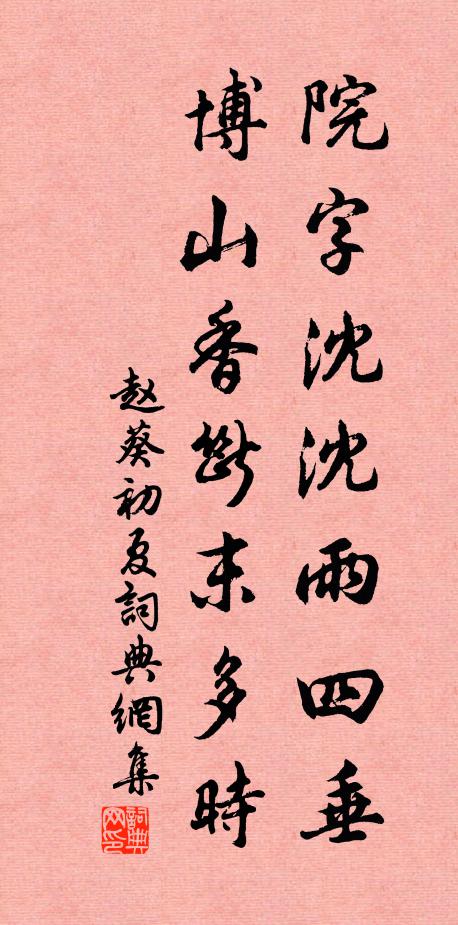 院字沈沈雨四垂
博山香斷未多時
赵葵初夏詞典網集
詞典网印